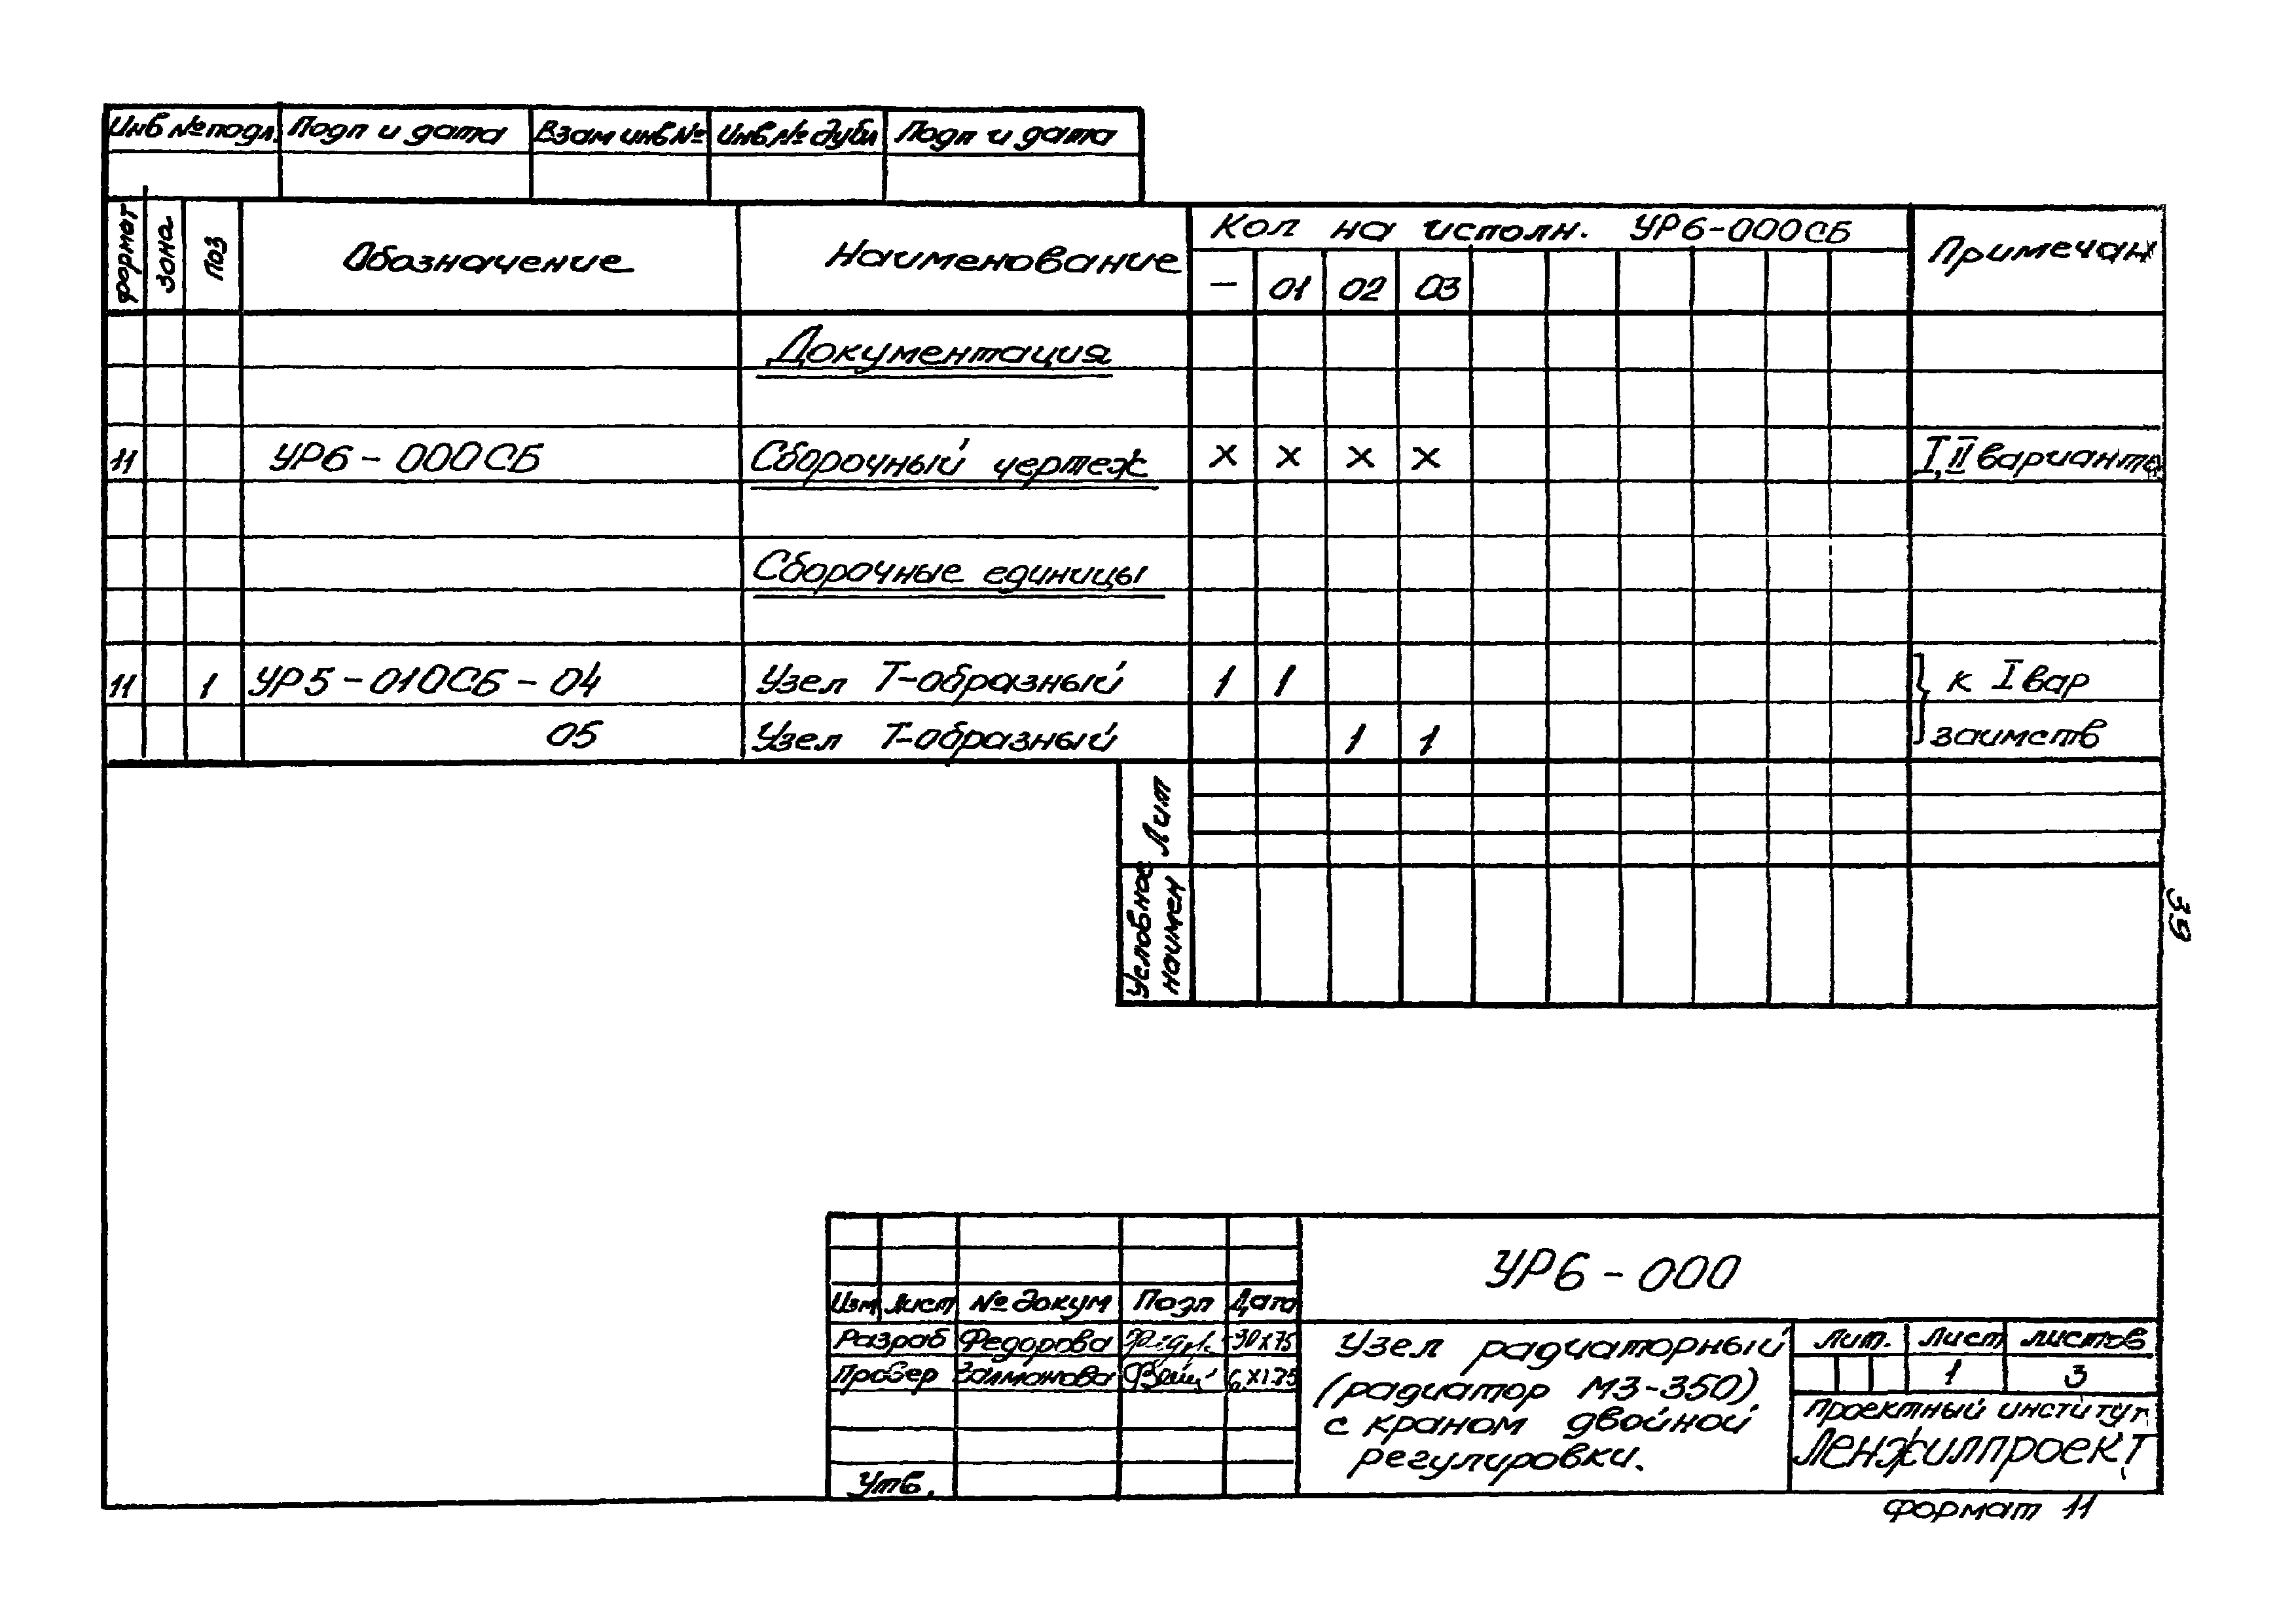 Инв №подл. Подп и дата Взам инв№ Инв№ дубл Подп и дата
формат зона Поз Обозначение Наименование Кол на исполн. УР6-000СБ Примечан
— 01 02 03
Документация
11 УР6-000СБ Сборочный чертеж х х х х I, II варианта
Сборочные единицы
11 1 УР5-010СБ-04 Узел Т-образный 1 1 к I вар
05 Узел Т-образный 1 1 заимств
Лит
Условное наимен
39
УР6-000
Изм Лист № докум Подп Дата
Разраб Федорова 30 X 75
Провер Залманова 6 XI 75
Утв.
Узел радиаторный
(радиатор МЗ-350)
с краном двойной
регулировки.
Лит. Лист Листов
1 3
Проектный институт
ЛЕНЖИЛПРОЕКТ
Формат 11